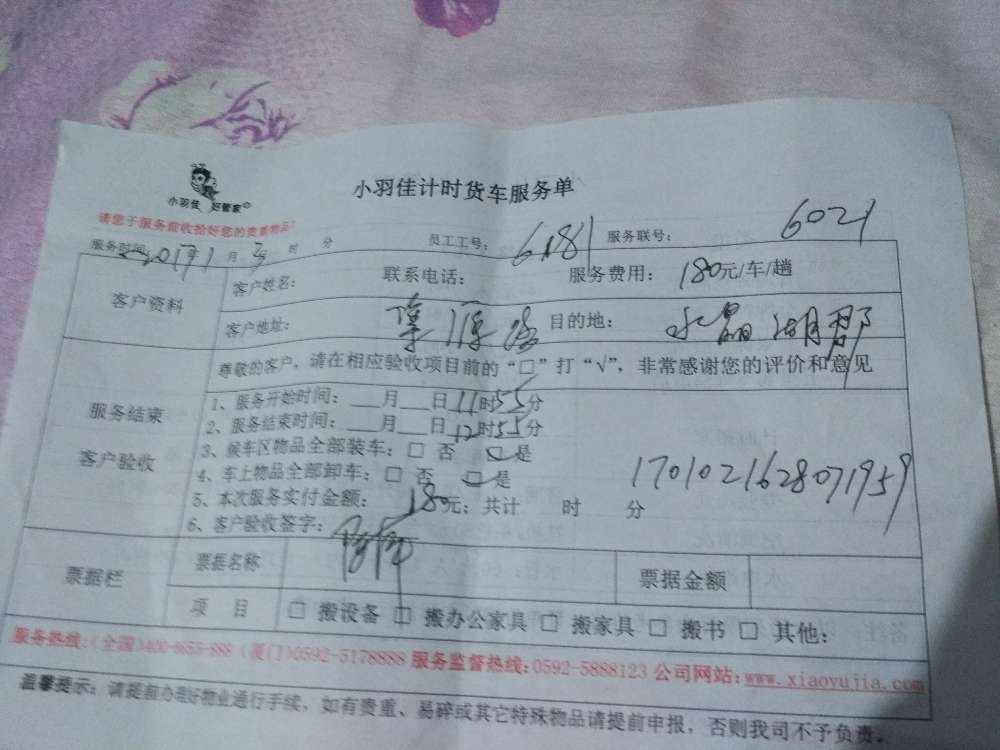 小羽佳 好管家
小羽佳计时货车服务单
请您于服务前收拾好您的贵重物品
服务时间: 2017年1月3 时 分 员工工号: 6181 服务联号: 6021
客户资料 客户姓名: 联系电话: 服务费用: 180元/车/趟
客户地址: 目的地: 水晶湖郡
服务结束
客户验收
尊敬的客户,请在相应验收项目前的“□”打“√”,非常感谢您的评价和意见
1、服务开始时间: ___月___日11时55分
2、服务结束时间: ___月___日12时55分
3、候车区物品全部装车: □ 否 □是
4、车上物品全部卸车: □ 否 □是
5、本次服务实付金额: 180元; 共计 时 分
6、客户验收签字:
1701021628071959
票据栏 票据名称 票据金额
项 目 □ 搬设备 □ 搬办公家具 □ 搬家具 □ 搬书 □ 其他:
服务热线: (全国)400-8655-888 (厦门)0592-5178888 服务监督热线: 0592-5888123 公司网站: www.xiaoyujia.com
温馨提示: 请提前办理好物业通行手续, 如有贵重、易碎或其它特殊物品请提前申报, 否则我司不予负责。